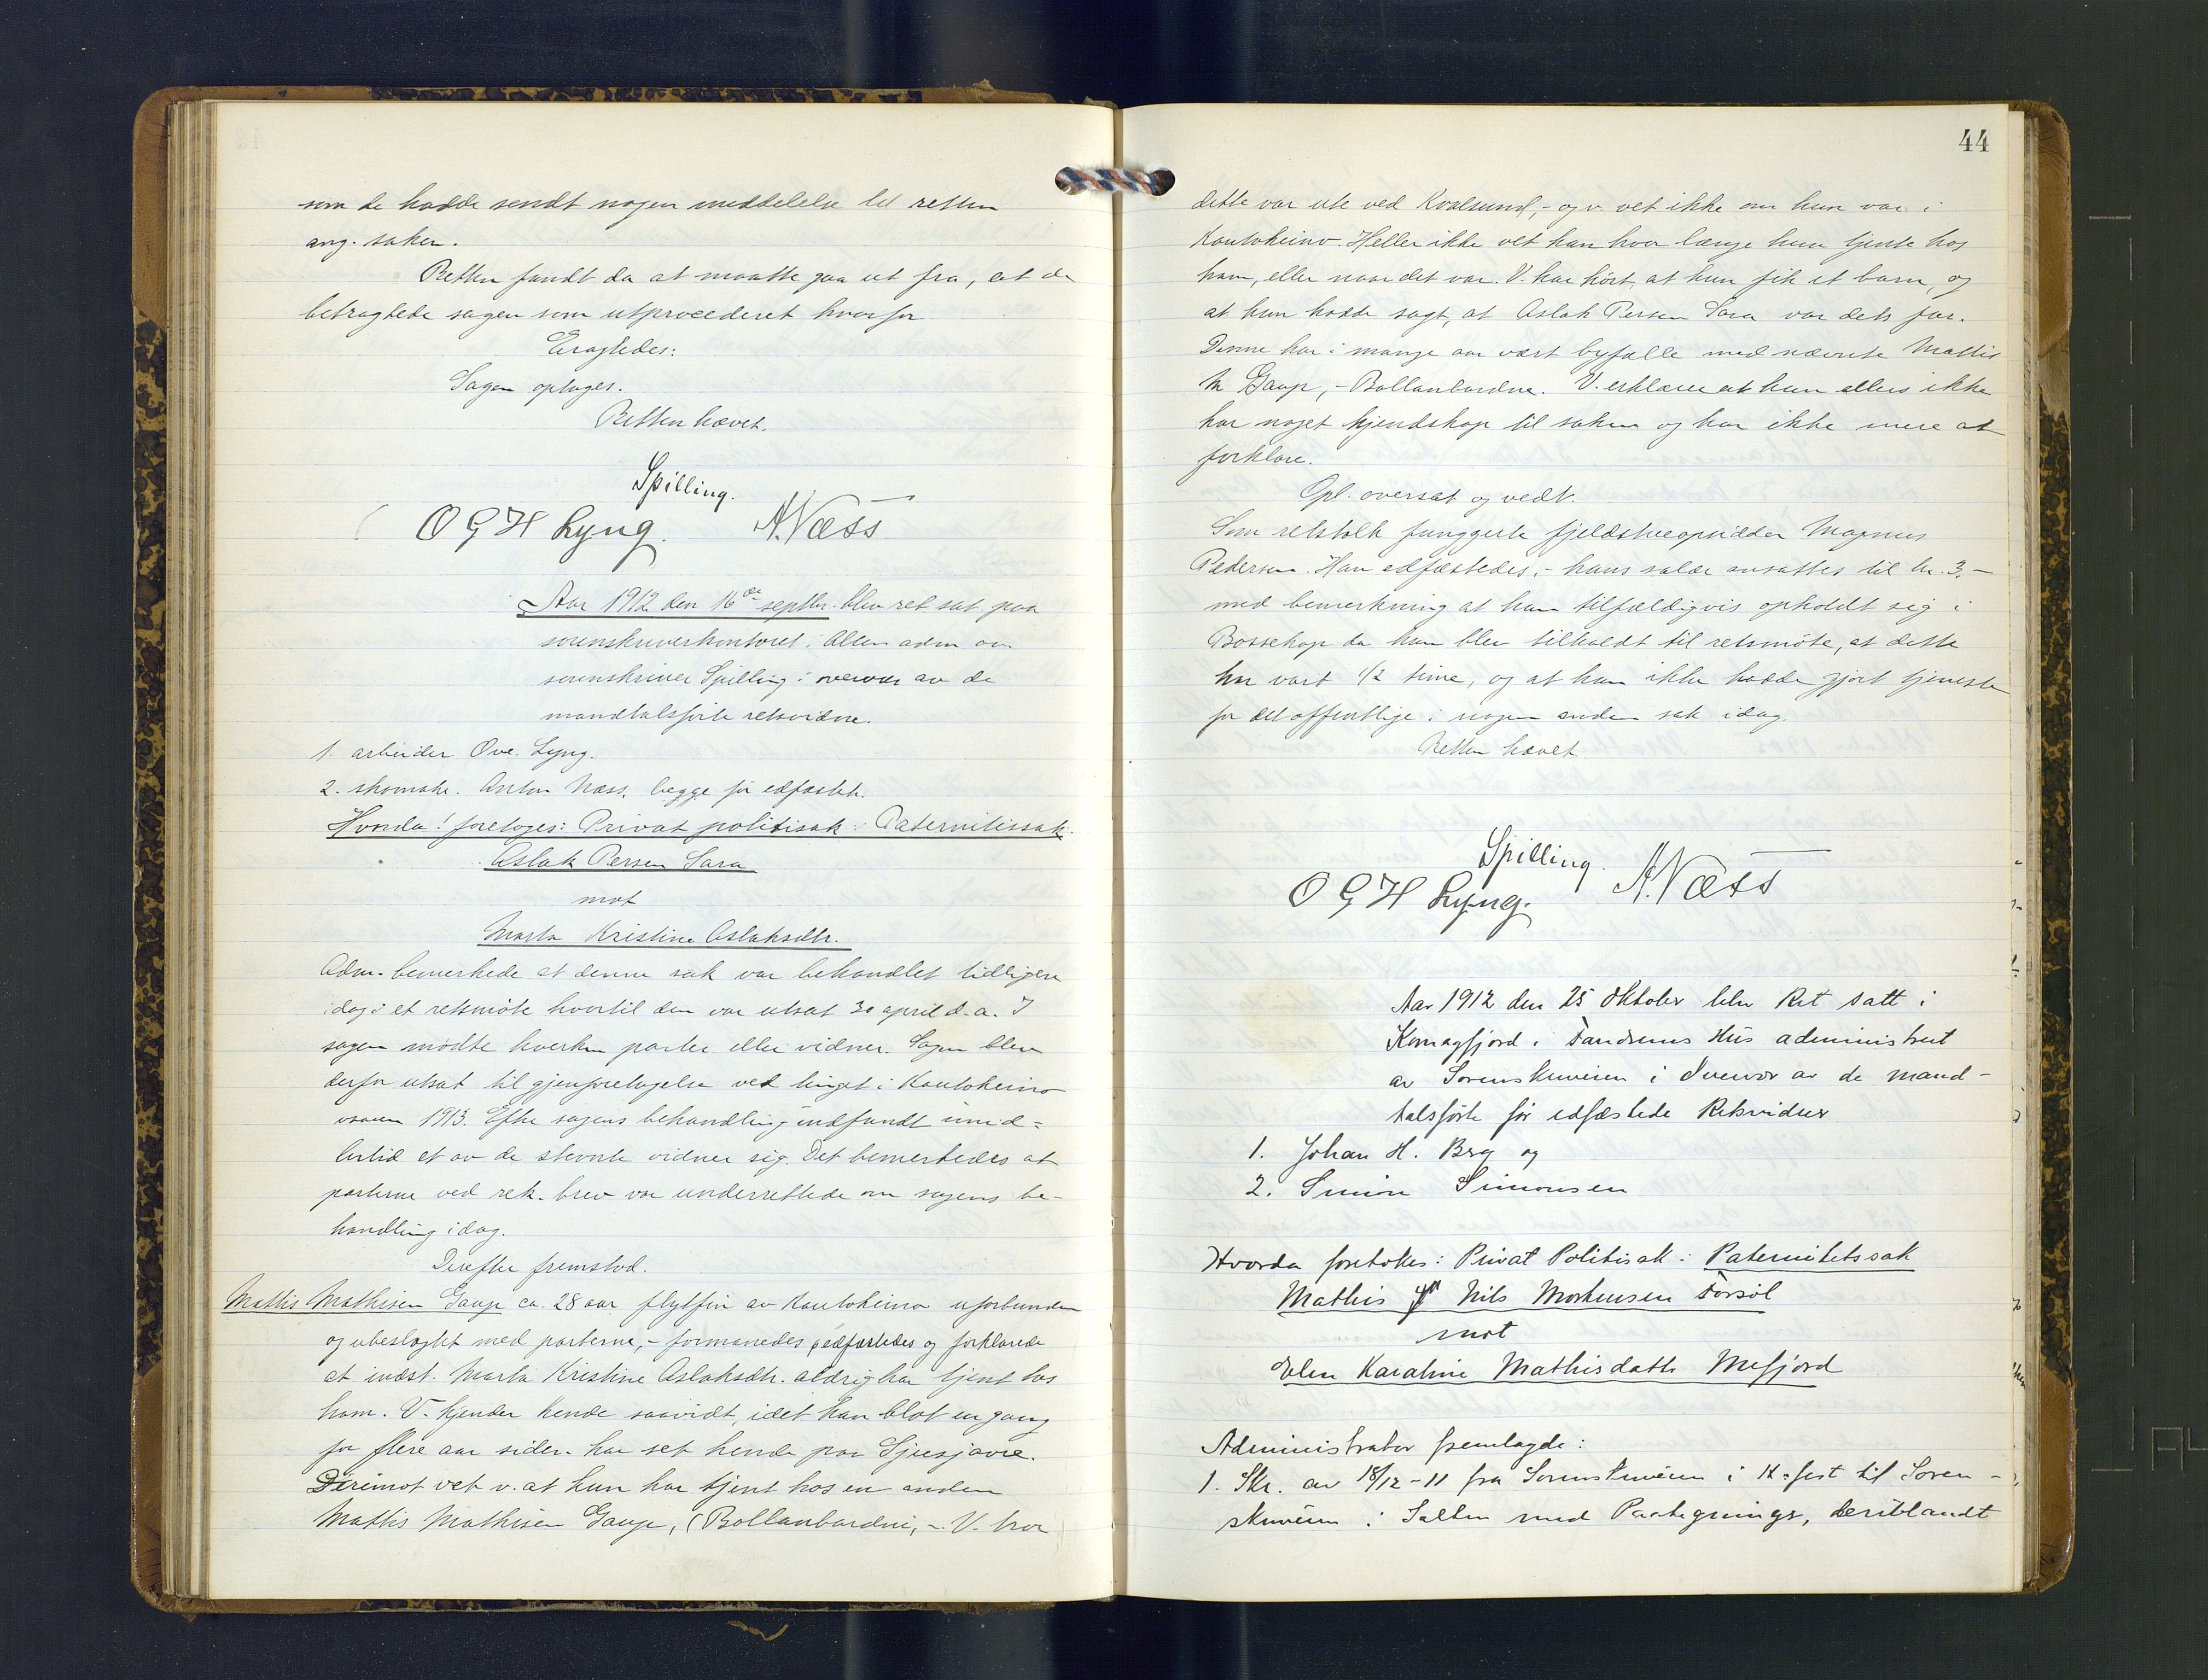 som de hadde sendt nogen meddelelse til retten
ang. saken.
Retten fandt da at maatte gaa ut fra, at de
betragtede sagen som utprocederet hvorfor
Eragtedes:
Sagen optages.
Retten hævet.
Spilling.
O G H Lyng. A. Næss
Aar 1912 den 16de septbr. blev ret sat paa
sorenskriverkontoret i Alten adm av
sorenskriver Spilling i overvær av de
mandtalsførte retsvidne.
1. arbeider Ove Lyng.
2. skomake. Anton Næss, begge før edfæstet.
Hvorda! foretoges: Privat politisak: Paternitissak.
Aslak Persen Sara
mot
Marta Kristine Aslaksdtr.
Adm. bemerkede at denne sak var behandlet tidligere
idag i et retsmøte hvortil den var utsat 30 april d.a. I
sagen mødte hverken parter eller vidner. Sagen blev
derfor utsat til gjenforetagelse ved tinget i Kautokeino
vaaren 1913. Efter sagens behandling indfandt imid-
lertid et av de stevnte vidner sig. Det bemerkedes at
parterne ved rek. brev var underrettede om sagens be-
handling idag.
Derefter fremstod.
Mathis Mathisen Gaup ca. 28 aar flytfin av Kautokeino uforbunden
og ubeslagtet med parterne, - formanedes, edfæstedes og forklarede
at indst. Marta Kristine Aslaksdtr. aldrig har tjent hos
ham. V. kjender hende saavidt, idet han blot en gang
for flere aar siden har set hende paa Sjusjavre.
Derimot vet v. at hun har tjent hos en anden
Mathis Mathisen Gaup, (Bollanbardni, - V. tror
44
dette var ute ved Kvalsund, - og v. vet ikke om hun var i
Kautokeino. Heller ikke vet han hvor længe hun tjente hos
ham, eller naar det var. V. har hørt, at hun fik et barn, og
at hun hadde sagt, at Aslak Persen Sara var dets far.
Denne har i mange aar vært byfælle med nævnte Mathis
M Gaup, - Bollanbardne. V. erklærer at han ellers ikke
har noget kjendskap til saken og har ikke mere at
forklare.
Opl. oversat og vedt.
Som retstolk fungerte fjeldstueopsidder Magnus
Pedersen. Han edfæstedes, - hans salær ansattes til kr. 3,-
med bemerkning at han tilfældigvis opholdt sig i
Bossekop da han blev tilkaldt til retsmøte, at dette
har vart 1/2 time, og at han ikke hadde gjort tjeneste
for det offentlige i nogen anden sak idag.
Retten hævet
Spilling.
O G H Lyng. A. Næss
Aar 1912 den 25 Oktober blev Ret satt i
Komagfjord i Tandrems Hus administreret
av Sorenskriveren i Overvær av de mand-
talsførte før edfæstede Retsvidner
1. Johan H. Berg og
2. Simon Simonsen
Hvorda foretokes: Privat Politisak: Paternitetssak
Mathis Nils Mortensen Forsøl
mot
Elen Karaline Mathisdatter Mefjord
Administrator fremlagde:
1. Skr. av 18/12-11 fra Sorenskriveren i H.fest til Soren-
skriveren i Salten med Paategninger, deriblandt